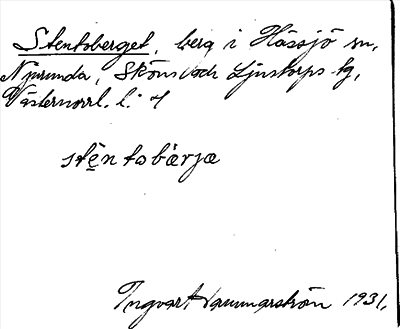 Stentsberget, berg i Hässjö sn,
Njurunda, Sköns och Ljustorps tg,
Västernorrl. l. 4
stentsbærjæ
Ingvar Hammarström 1931.